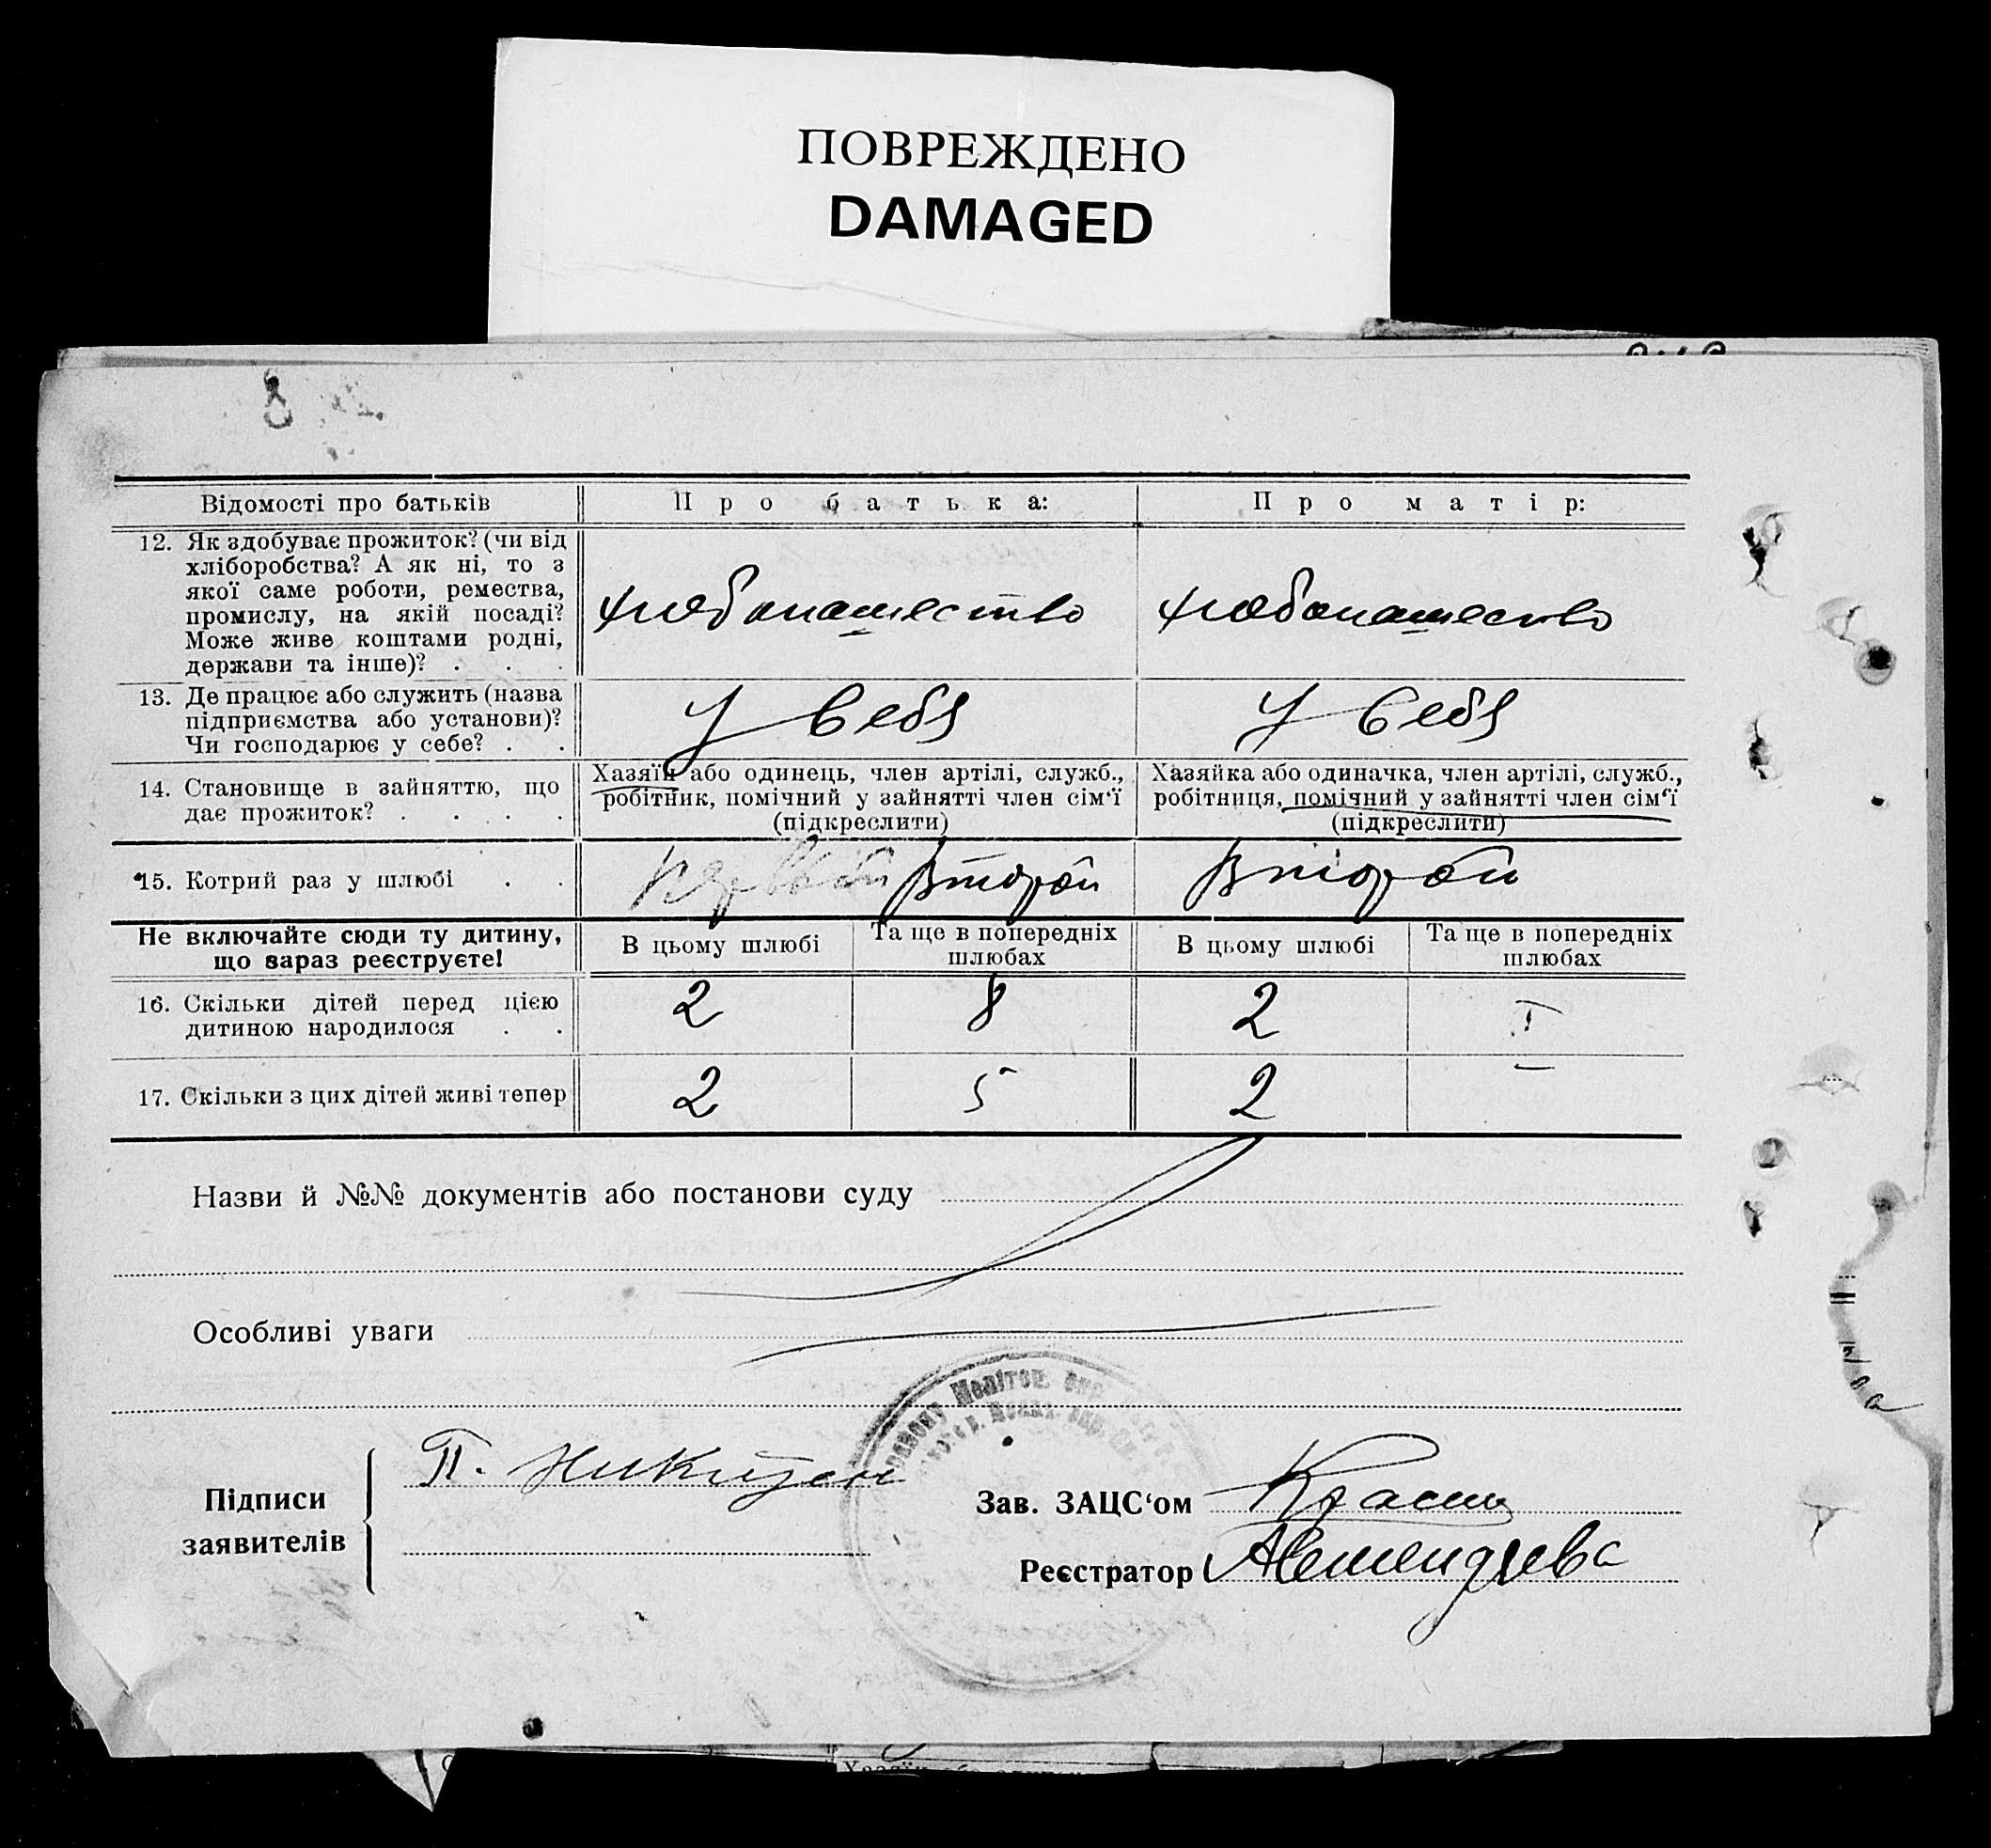 ПОВРЕЖДЕНО
DAMAGED
8
Відомості про батьків
Про батька:
Про матір:
12. Як здобуває прожиток? (чи від
хліборобства? А як ні, то з
якої саме роботи, ремества,
промислу, на якій посаді?
Може живе коштами родні,
держави та інше)? . . .
хлебопашество
хлебопашество
13. Де працює або служить (назва
підприємства або установи)?
Чи господарює у себе? . .
У себя
У себя
14. Становище в зайняттю, що
дає прожиток? . . . .
Хазяїн або одинець, член артілі, служб.,
робітник, помічний у зайнятті член сім‘ї
(підкреслити)
Хазяйка або одиначка, член артілі, служб.,
робітниця, помічний у зайнятті член сім‘ї
(підкреслити)
15. Котрий раз у шлюбі . .
первый Второй
Второй
Не включайте сюди ту дитину,
що зараз реєструєте!
В цьому шлюбі
Та ще в попередніх
шлюбах
В цьому шлюбі
Та ще в попередніх
шлюбах
16. Скільки дітей перед цією
дитиною народилося . .
2
8
2
I
17. Скільки з цих дітей живі тепер
2
5
2
—
Назви й №№ документів або постанови суду
Особливі уваги
Підписи
заявителів
П. Никитен
Зав. ЗАЦС‘ом
Реєстратор